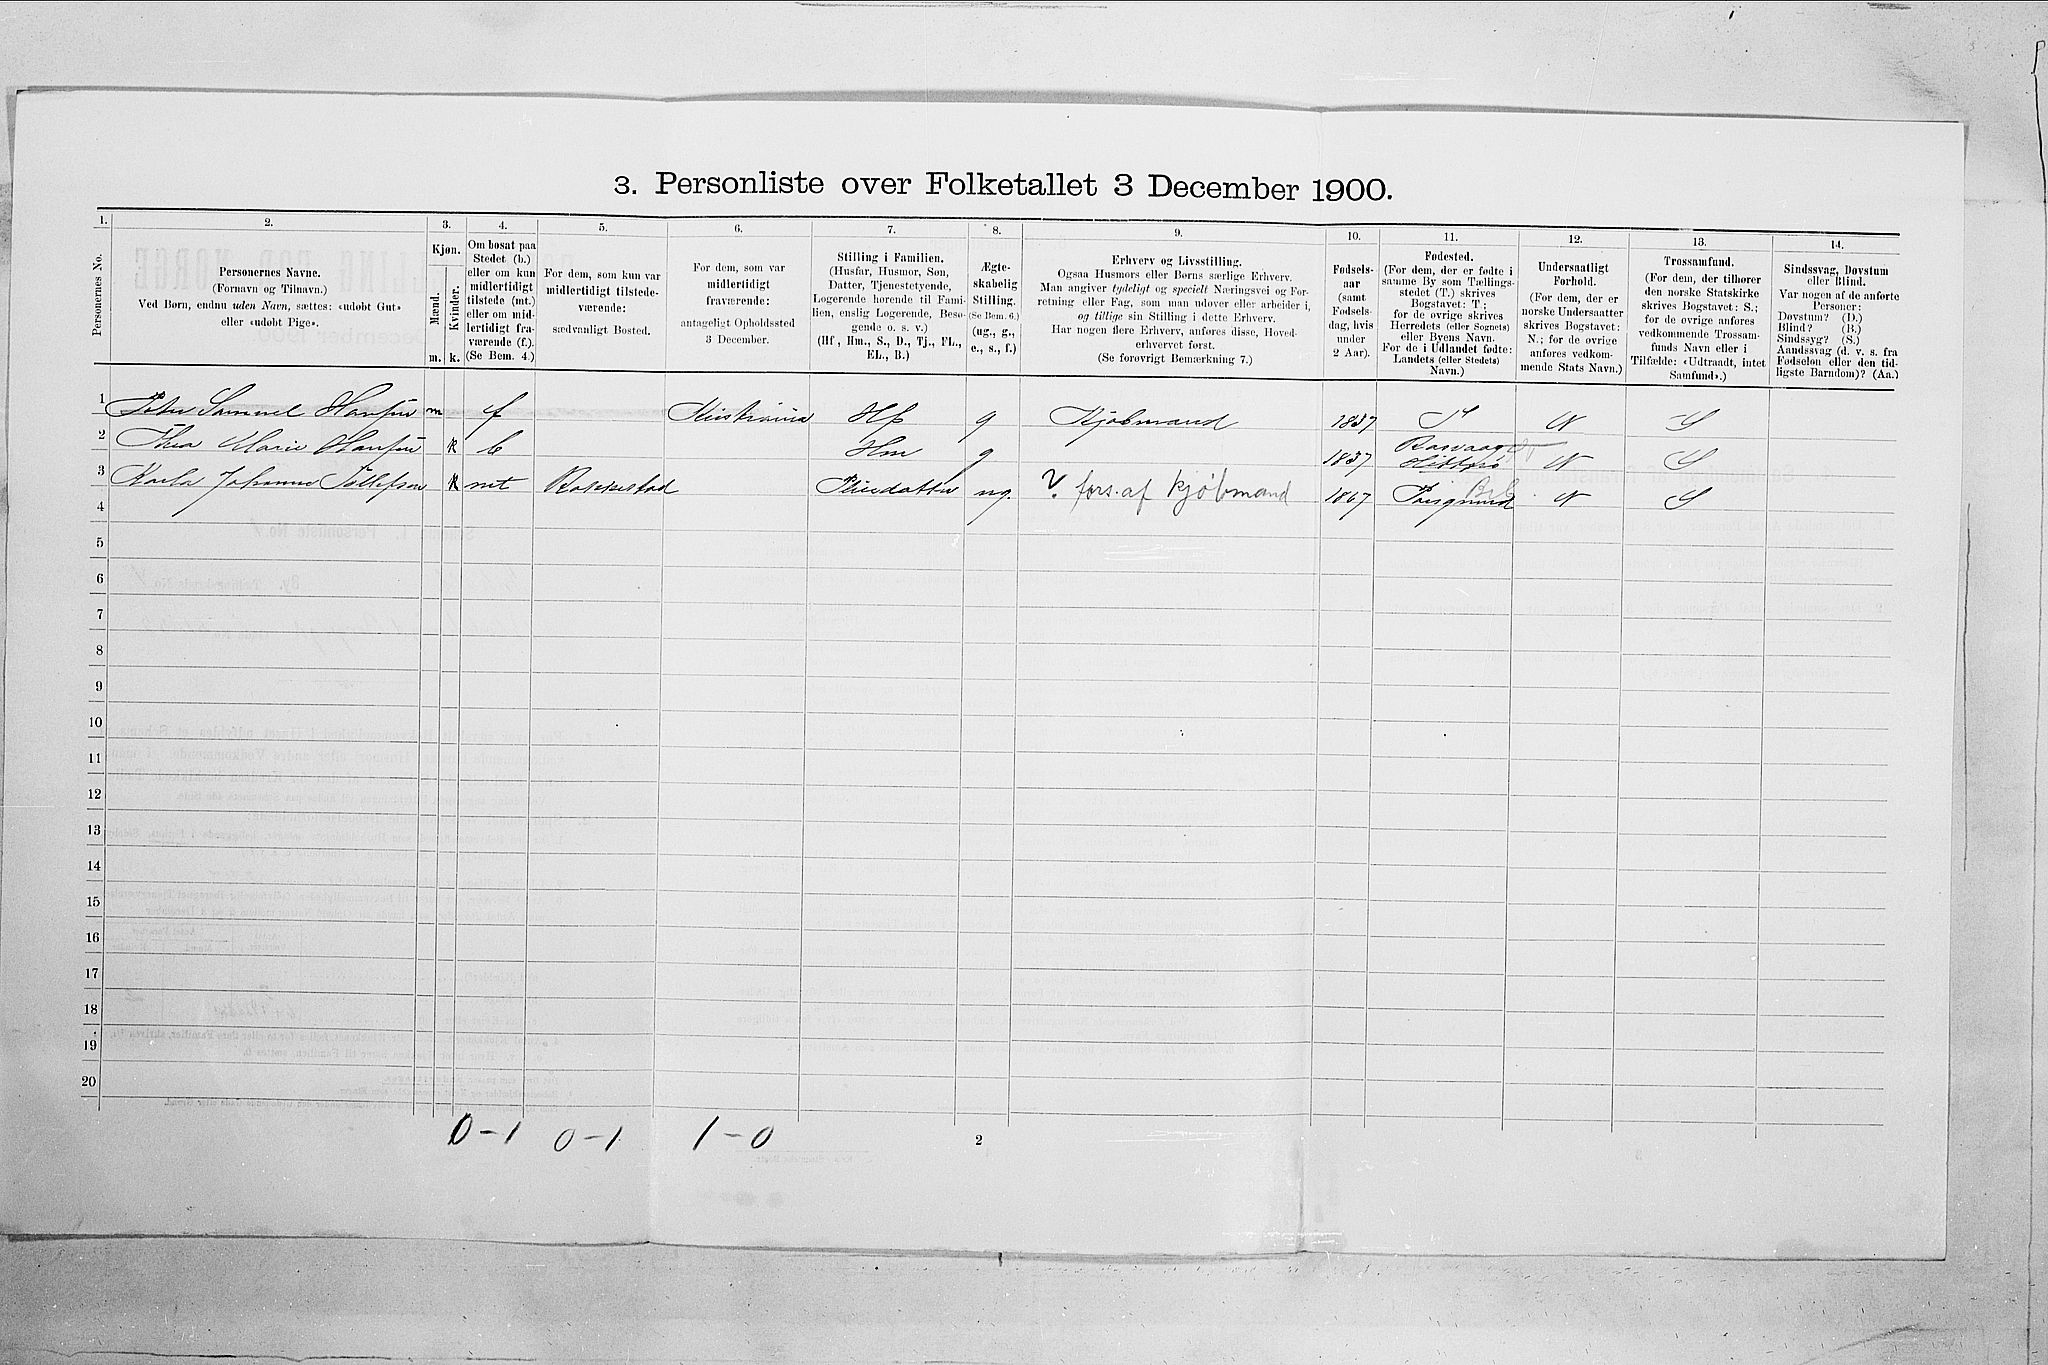 3. Personliste over Folketallet 3 December 1900.
1. 2. 3. 4. 5. 6. 7. 8. 9. 10. 11. 12. 13. 14.
Personernes No.
Personernes Navne.
(Fornavn og Tilnavn.)
Ved Børn, endnu uden Navn, sættes: «udøbt Gut»
eller «udøbt Pige».
Kjøn.
Mænd.
Kvinder.
m. k.
Om bosat paa
Stedet (b.)
eller om kun
midlertidigt
tilstede (mt.)
eller om mid-
lertidigt fra-
værende (f.).
(Se Bem. 4.)
For dem, som kun var
midlertidigt tilstede-
værende:
sædvanligt Bosted.
For dem, som var
midlertidigt
fraværende:
antageligt Opholdssted
3 December.
Stilling i Familien.
(Husfar, Husmor, Søn,
Datter, Tjenestetyende,
Logerende hørende til Fami-
lien, enslig Logerende, Besø-
gende o. s. v.)
(Hf., Hm., S., D., Tj., FL.,
EL., B.)
Ægte-
skabelig
Stilling.
(Se Bem. 6.)
(ug., g.,
e., s., f.)
Erhverv og Livsstilling.
Ogsaa Husmors eller Børns særlige Erhverv.
Man angiver tydeligt og specielt Næringsvei og For-
retning eller Fag, som man udover eller arbeider i,
og tillige sin Stilling i dette Erhverv.
Har nogen flere Erhverv, anføres disse, Hoved-
erhvervet først.
(Se forøvrigt Bemærkning 7.)
Fødsels-
aar
(samt
Fødsels-
dag, hvis
under
2 Aar).
Fødested.
(For dem, der er fødte i
samme By som Tællings-
stedet (T.) skrives
Bogstavet: T.;
for de øvrige skrives
Herredets (eller Sognets)
eller Byens Navn.
For de i Udlandet fødte:
Landets (eller Stedets)
Navn.)
Undersaatligt
Forhold.
(For dem, der er
norske Undersaatter
skrives Bogstavet:
N.; for de øvrige
anføres vedkom-
mende Stats Navn.)
Trossamfund.
(For dem, der tilhører
den norske Statskirke
skrives Bogstavet: S.;
for de øvrige anføres
vedkommende Trossam-
funds Navn eller i
Tilfælde: «Udtraadt, intet
Samfund».)
Sindssvag, Døvstum
eller Blind.
Var nogen af de anførte
Personer:
Døvstum? (D.)
Blind? (B.)
Sindssyg? (S.)
Aandssvag (d. v. s. fra
Fødselen eller den tid-
ligste Barndom)? (Aa.)
1 Peter Samuel Hansen m f Kristiania Hf g Kjøbmand 1837 T N S
2 Thea Marie Hansen k b Hm g 1837 Rasvaag Hitterø N S
3 Karla Johanne Tellefsen k mt Bakkestad Pleiedatter ug. ? fors. af kjøbmand 1867 Porsgrund N S
4
5
6
7
8
9
10
11
12
13
14
15
16
17
18
19
20
0-1 0-1 1-0
2